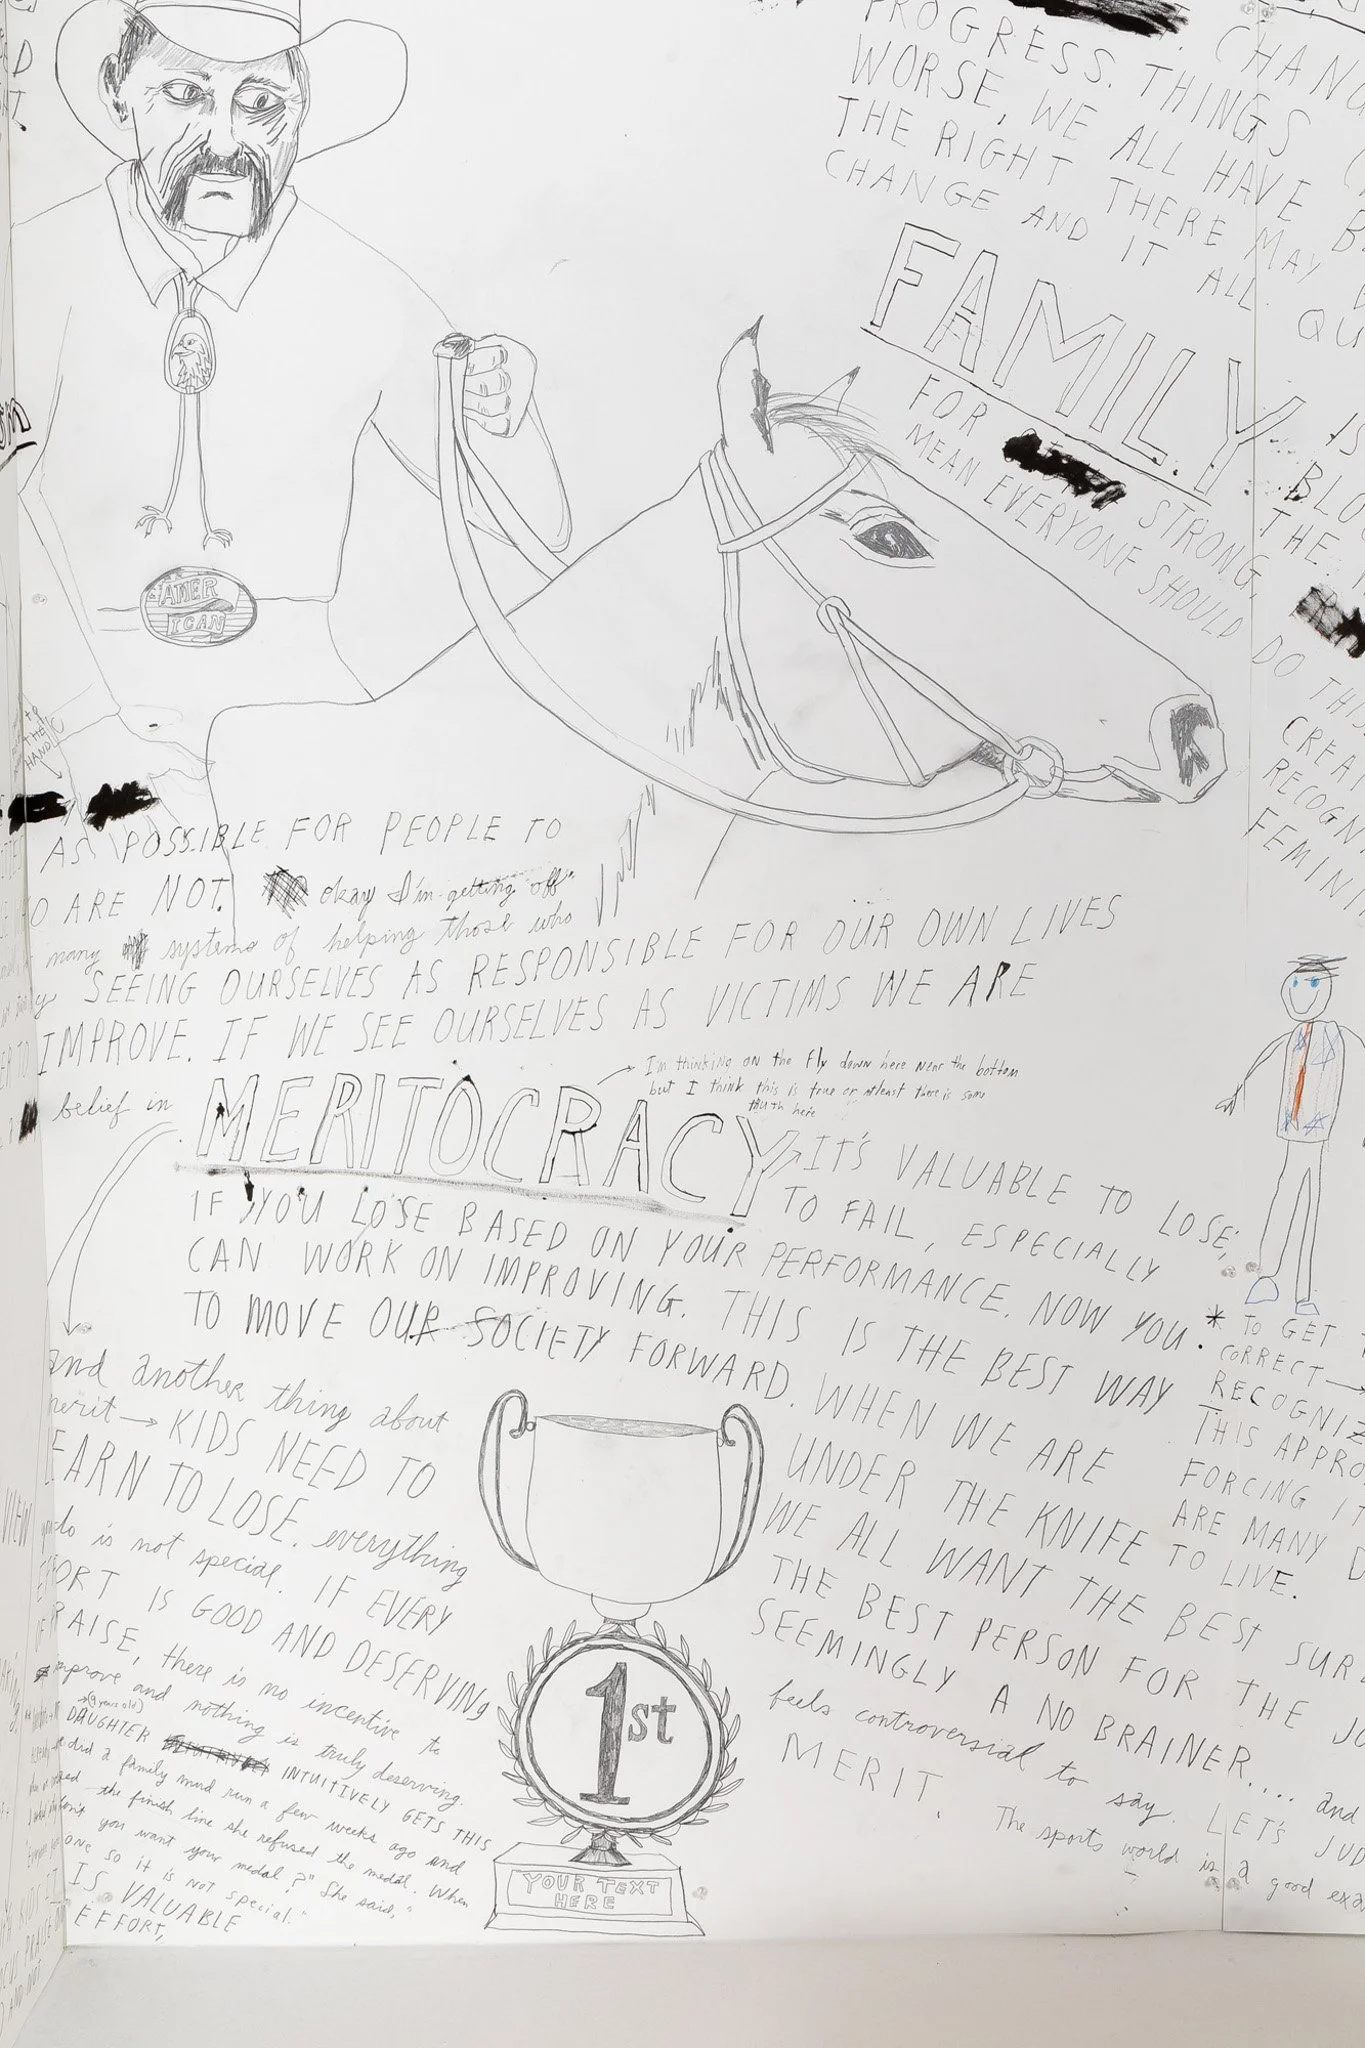 PROGRESS. THINGS
CHANG
WORSE, WE ALL HAVE B
THE RIGHT THERE MAY B
CHANGE AND IT ALL QU
FAMILY IS
FOR STRONG, BLO
MEAN EVERYONE SHOULD DO THIS
THE
CREA
RECOGN
FEMINI
AMERICAN
THE
HAND
AS POSSIBLE FOR PEOPLE TO
O ARE NOT. okay I'm getting off
many systems of helping those who
SEEING OURSELVES AS RESPONSIBLE FOR OUR OWN LIVES
IMPROVE. IF WE SEE OURSELVES AS VICTIMS WE ARE
belief in MERITOCRACY
I'm thinking on the fly down here near the bottom
but I think this is true or atleast there is some
truth here
IT'S VALUABLE TO LOSE,
TO FAIL, ESPECIALLY
IF YOU LOSE BASED ON YOUR PERFORMANCE. NOW YOU
CAN WORK ON IMPROVING. THIS IS THE BEST WAY
TO MOVE OUR SOCIETY FORWARD. WHEN WE ARE
UNDER THE KNIFE TO LIVE.
WE ALL WANT THE BEST SUR
THE BEST PERSON FOR THE JO
SEEMINGLY A NO BRAINER.... and
feels controversial to say. LET'S JUD
MERIT. The sports world is a good exa
* TO GET
CORRECT →
RECOGNIZ
THIS APPRO
FORCING IT
ARE MANY D
and another thing about
merit → KIDS NEED TO
EARN TO LOSE. everything
do is not special. IF EVERY
ORT IS GOOD AND DESERVING
RAISE, there is no incentive to
mprove and nothing is truly deserving.
(9 years old)
DAUGHTER INTUITIVELY GETS THIS
did a family mud run a few weeks ago and
the finish line she refused the medal. When
don't you want your medal?" She said, "
ONE so it is not special."
IS VALUABLE
EFFORT,
VIEW
1st
YOUR TEXT
HERE